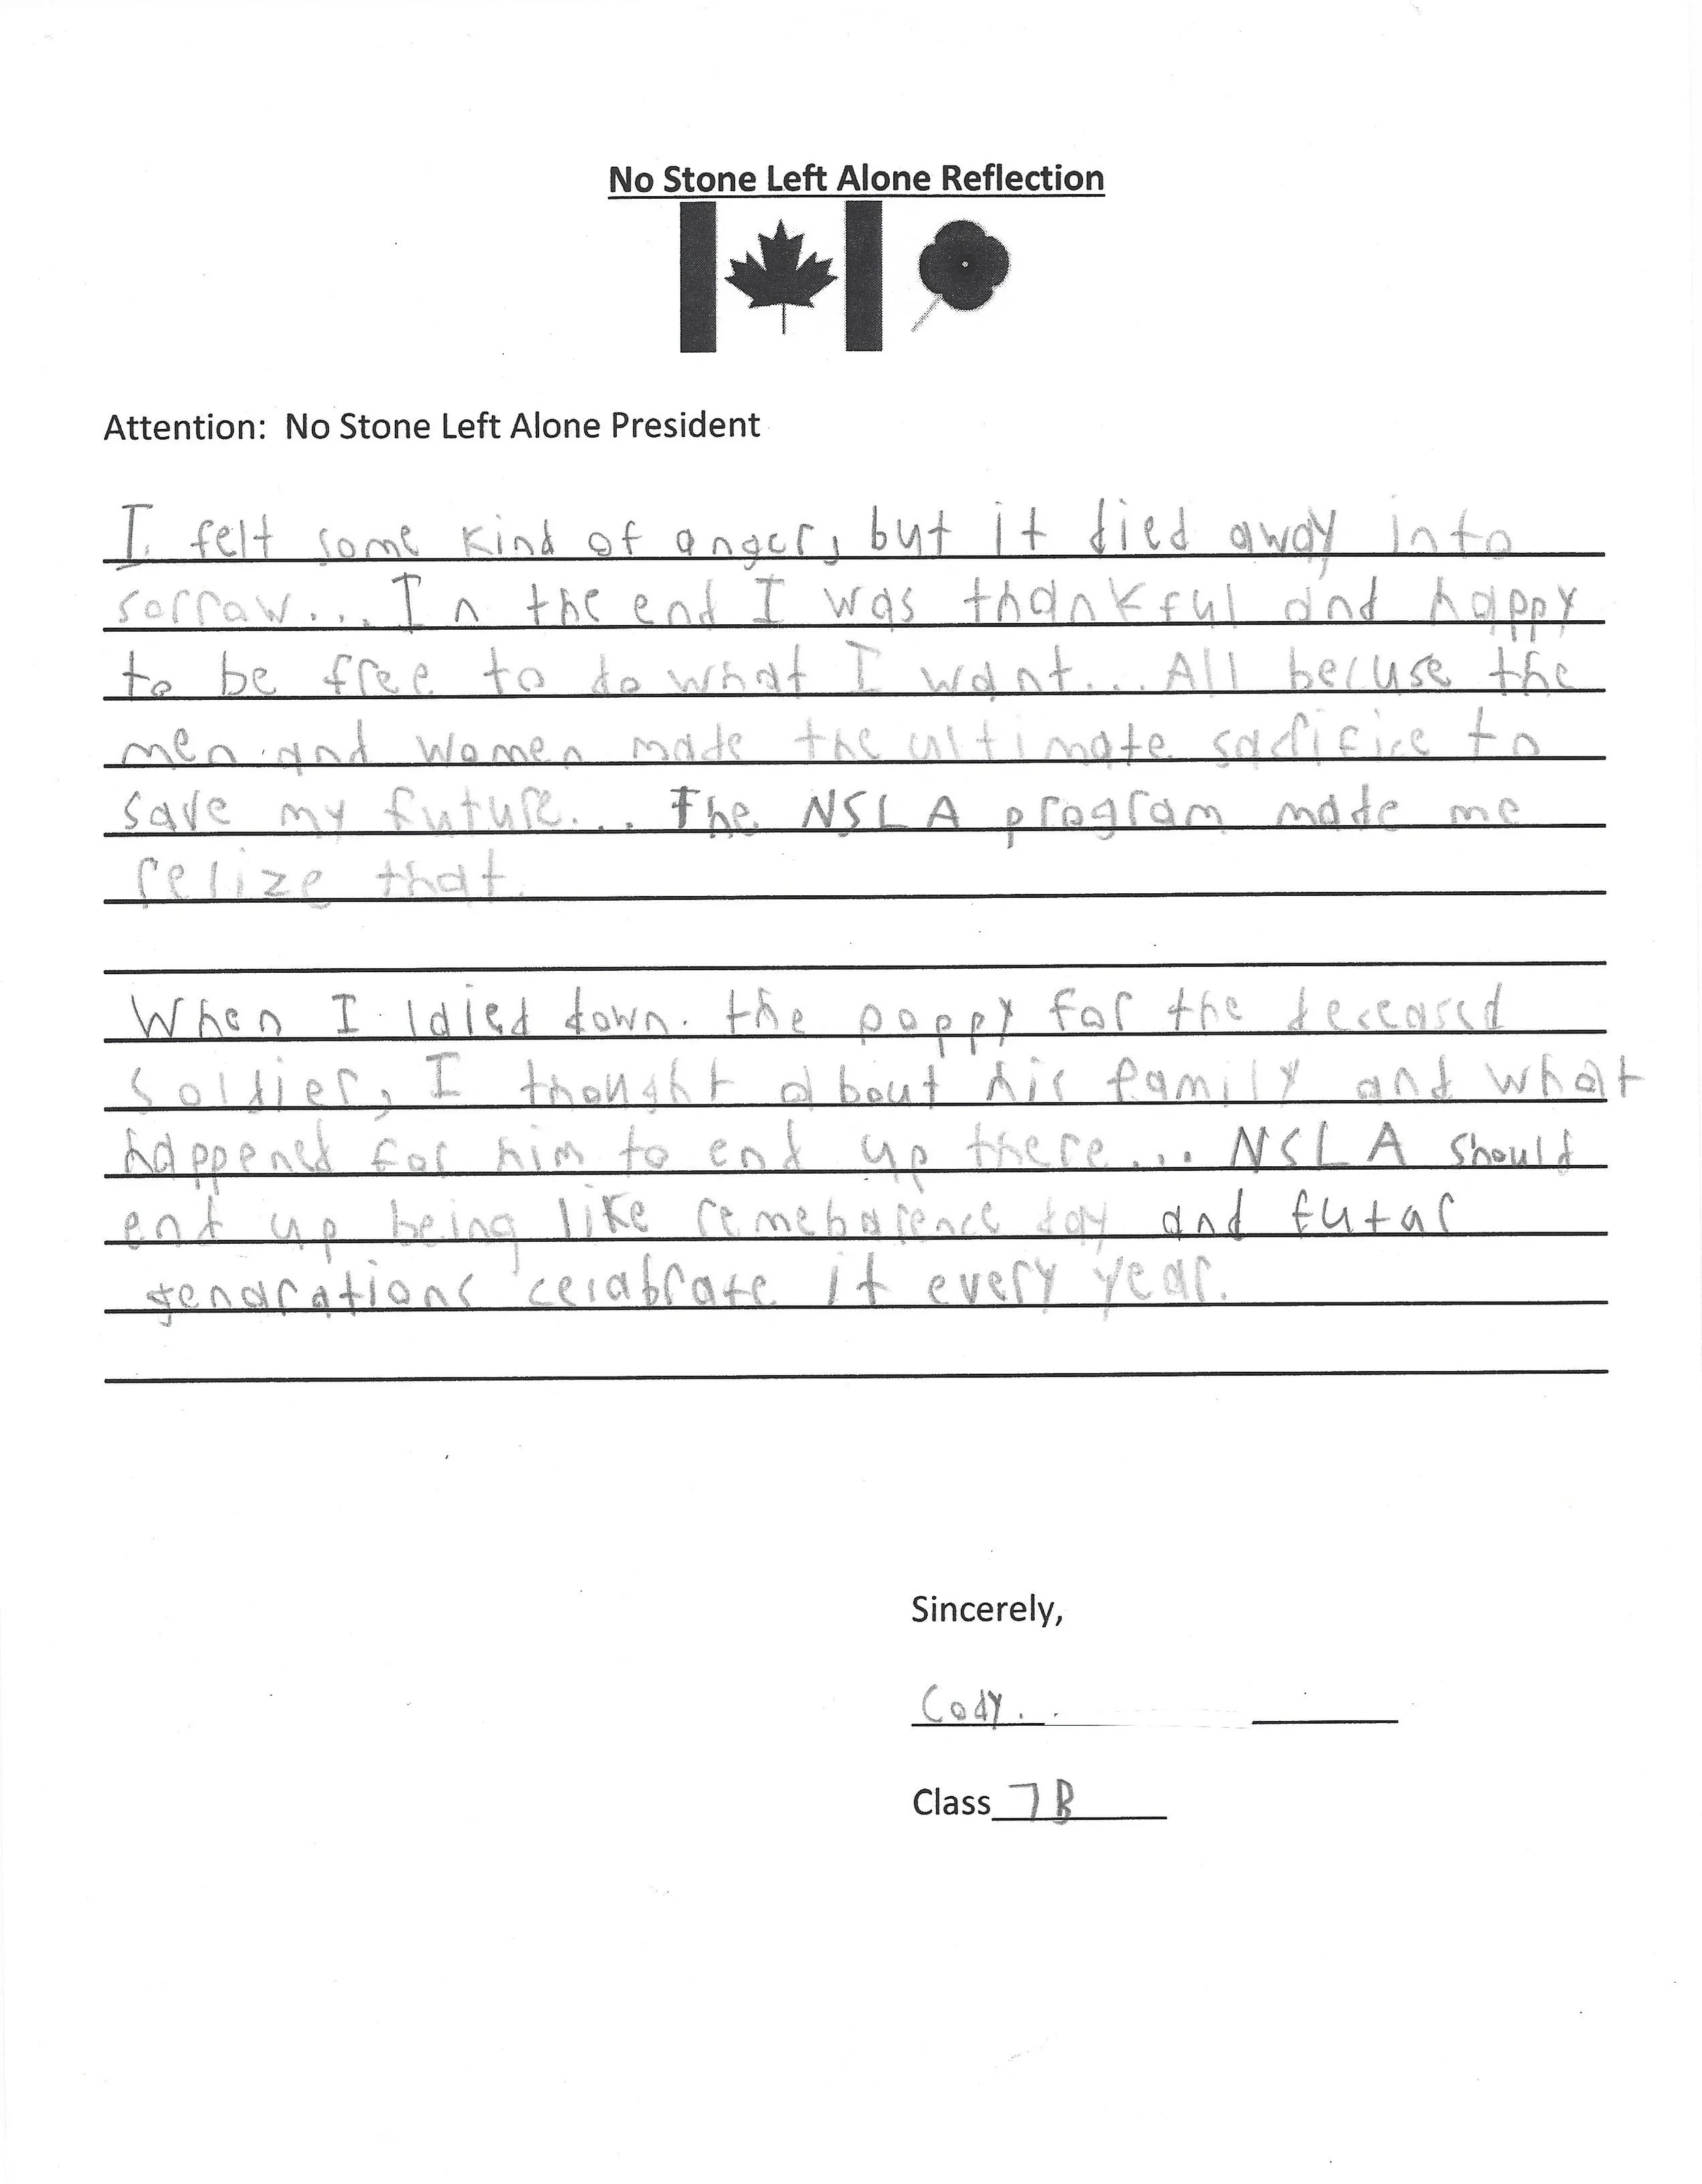 No Stone Left Alone Reflection
Attention: No Stone Left Alone President
I felt some kind of anger, but it died away into
sorraw... In the end I was thankful and happy
to be free to do what I want... All becuse the
men and women made the ultimate sacrifice to
save my future... The NSLA program made me
relize that.
When I laied down. the poppy for the deceased
soldier, I thought about his family and what
happened for him to end up there... NSLA should
end up being like remebarence day and futar
genarations celabrate it every year.
Sincerely,
Cody..
Class 7B